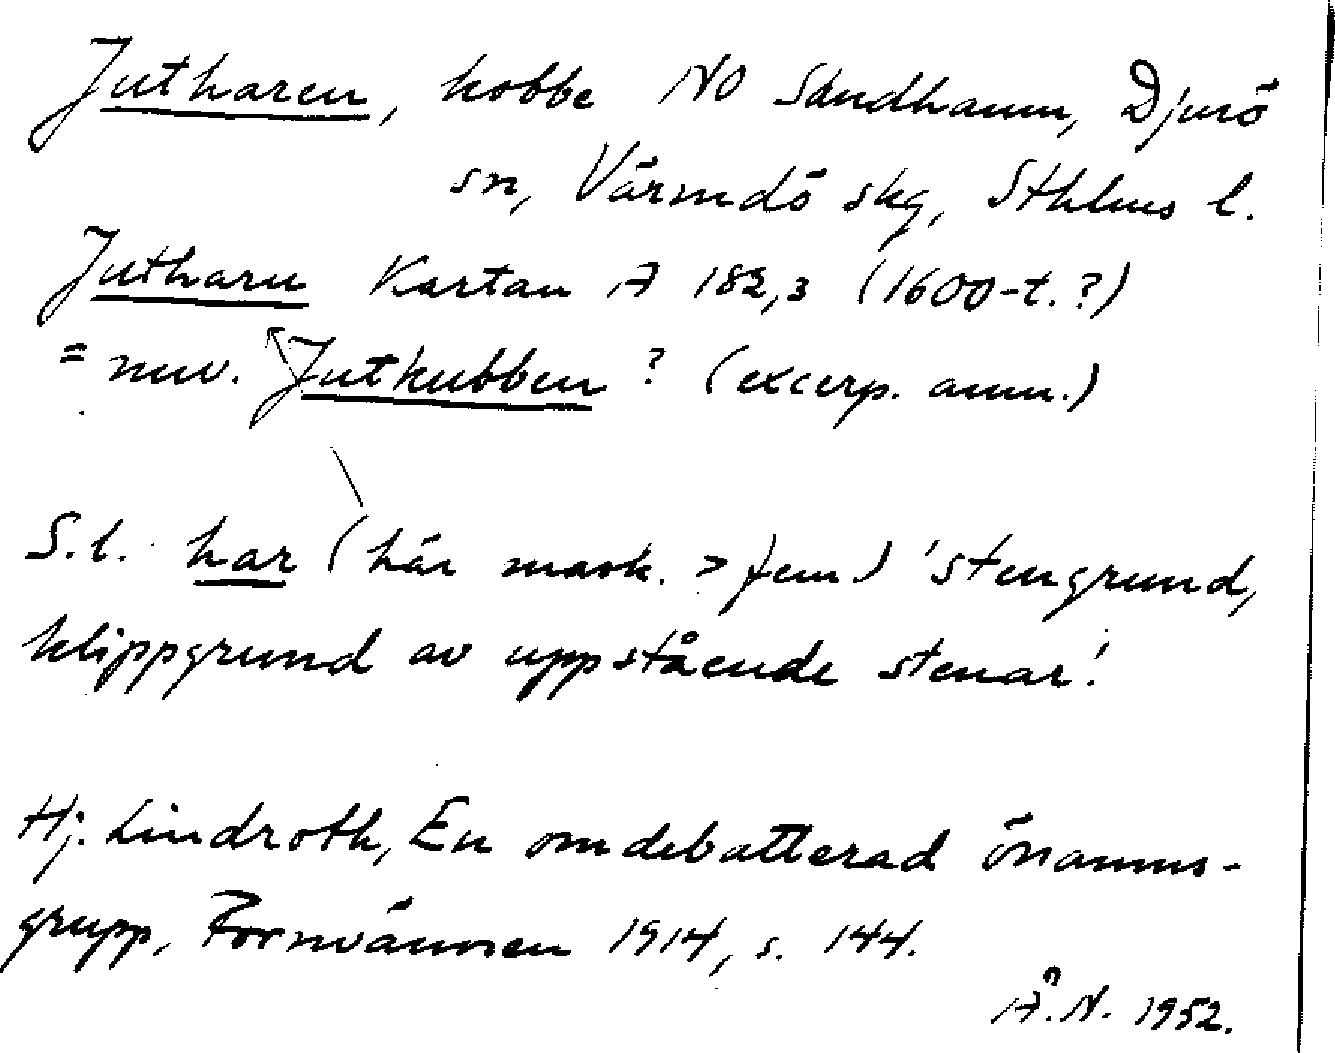 Jutharen, kobbe NO Sandhamn, Djurö
sn, Värmdö skg, Sthlms l.
Jutharn Kartan A 182,3 (1600-t.?)
= nuv. Jutkubben ? (excerp. anm.)
S.l. har (här mask. > fem.) 'stengrund,
klippgrund av uppstående stenar'.
Hj. Lindroth, En omdebatterad önamns-
grupp, Fornvännen 1914, s. 144.
Å. N. 1952.